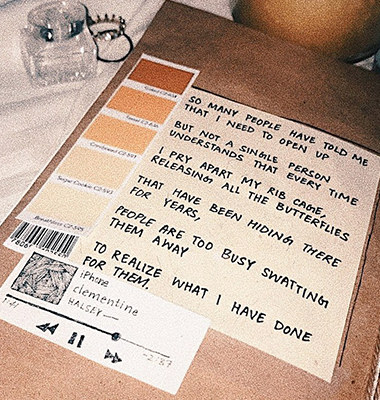 SO MANY PEOPLE HAVE TOLD ME
THAT I NEED TO OPEN UP
BUT NOT A SINGLE PERSON
UNDERSTANDS THAT EVERY TIME
I PRY APART MY RIB CAGE,
RELEASING ALL THE BUTTERFLIES
THAT HAVE BEEN HIDING THERE
FOR YEARS,
PEOPLE ARE TOO BUSY SWATTING
THEM AWAY
TO REALIZE WHAT I HAVE DONE
FOR THEM.
Sugar Cookie C2-593
iPhone
clementine
HALSEY